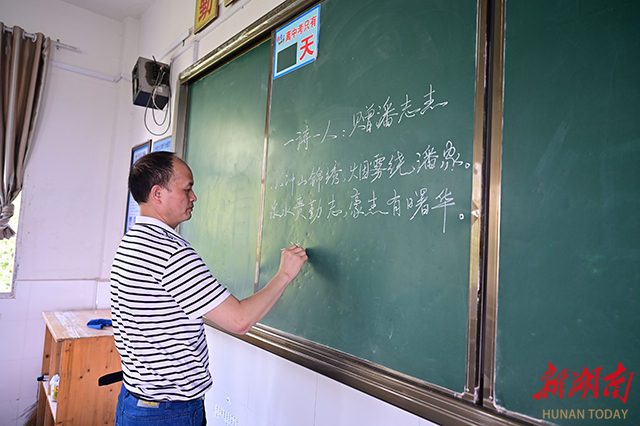 距中考只有
天
一诗一人：赠潘志杰
山锦绣，烟雾绕，潘家。
水 勤志，豪杰有曙华。
新湖南
HUNAN TODAY